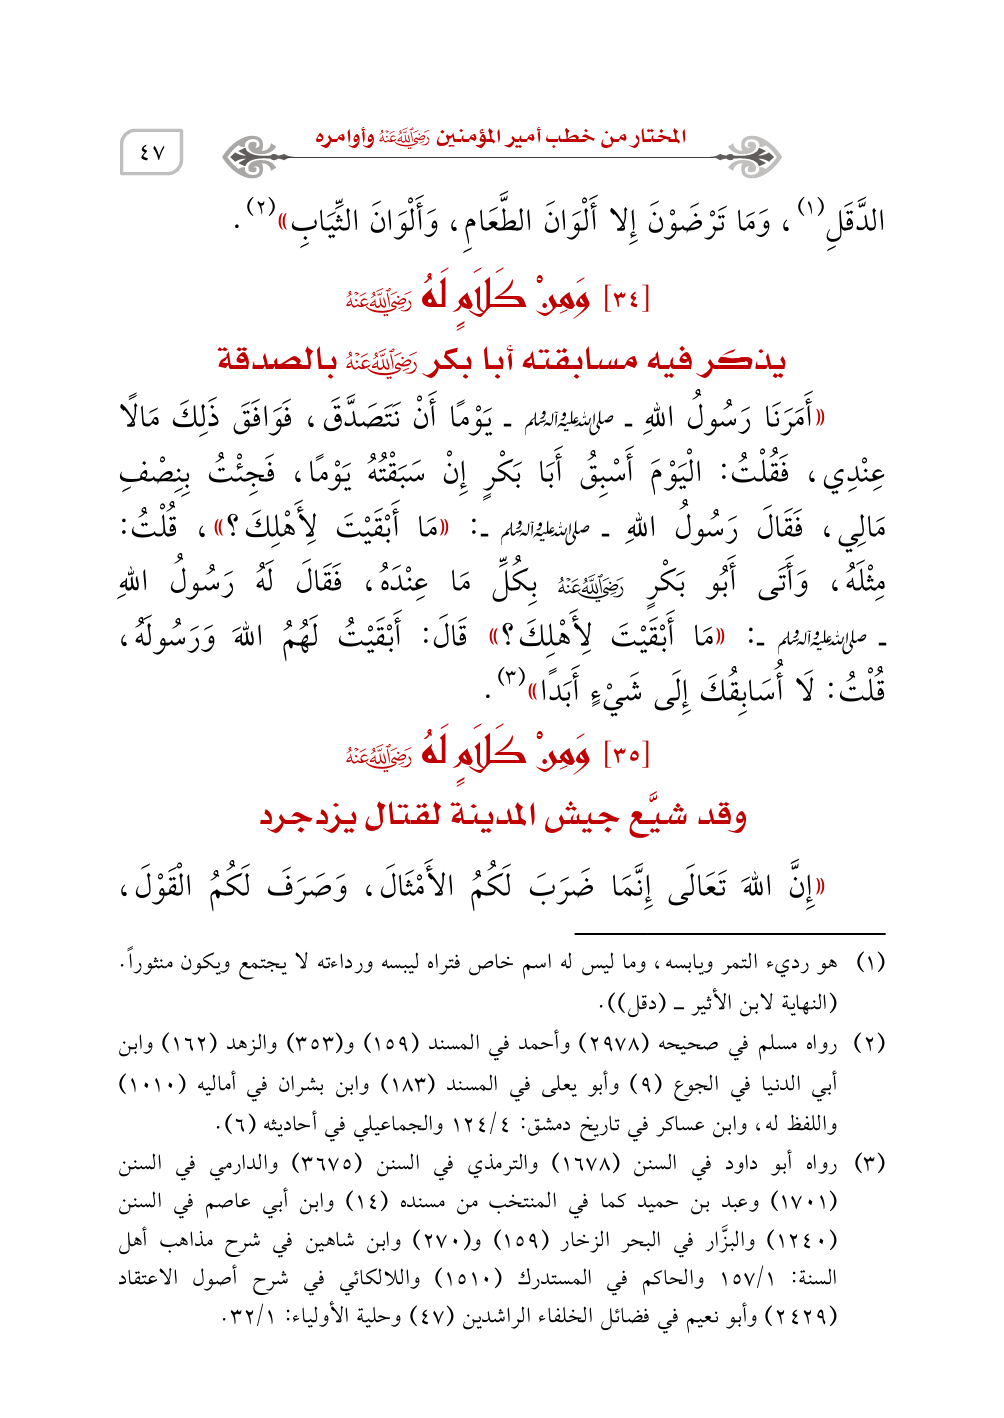 المختار من خطب أمير المؤمنين رَضِيَ اللَّهُ عَنْهُ وأوامره
٤٧
الدَّقَلِ(١)، وَمَا تَرْضَوْنَ إِلا أَلْوَانَ الطَّعَامِ، وَأَلْوَانَ الثِّيَابِ»(٢).
[٣٤] وَمِنْ كَلَامٍ لَهُ رَضِيَ اللَّهُ عَنْهُ
يذكر فيه مسابقته أبا بكر رَضِيَ اللَّهُ عَنْهُ بالصدقة
«أَمَرَنَا رَسُولُ اللهِ ـ صلى الله عليه وآله وسلم ـ يَوْمًا أَنْ نَتَصَدَّقَ، فَوَافَقَ ذَلِكَ مَالًا
عِنْدِي، فَقُلْتُ: الْيَوْمَ أَسْبِقُ أَبَا بَكْرٍ إِنْ سَبَقْتُهُ يَوْمًا، فَجِئْتُ بِنِصْفِ
مَالِي، فَقَالَ رَسُولُ اللهِ ـ صلى الله عليه وآله وسلم ـ: «مَا أَبْقَيْتَ لِأَهْلِكَ؟»، قُلْتُ:
مِثْلَهُ، وَأَتَى أَبُو بَكْرٍ رَضِيَ اللَّهُ عَنْهُ بِكُلِّ مَا عِنْدَهُ، فَقَالَ لَهُ رَسُولُ اللهِ
ـ صلى الله عليه وآله وسلم ـ: «مَا أَبْقَيْتَ لِأَهْلِكَ؟» قَالَ: أَبْقَيْتُ لَهُمُ اللهَ وَرَسُولَهُ،
قُلْتُ: لَا أُسَابِقُكَ إِلَى شَيْءٍ أَبَدًا»(٣).
[٣٥] وَمِنْ كَلَامٍ لَهُ رَضِيَ اللَّهُ عَنْهُ
وقد شيَّع جيش المدينة لقتال يزدجرد
«إِنَّ اللهَ تَعَالَى إِنَّمَا ضَرَبَ لَكُمُ الأَمْثَالَ، وَصَرَفَ لَكُمُ الْقَوْلَ،
(١) هو رديء التمر ويابسه، وما ليس له اسم خاص فتراه ليبسه ورداءته لا يجتمع ويكون منثوراً.
(النهاية لابن الأثير ــ (دقل)).
(٢) رواه مسلم في صحيحه (٢٩٧٨) وأحمد في المسند (١٥٩) و(٣٥٣) والزهد (١٦٢) وابن
أبي الدنيا في الجوع (٩) وأبو يعلى في المسند (١٨٣) وابن بشران في أماليه (١٠١٠)
واللفظ له، وابن عساكر في تاريخ دمشق: ١٢٤/٤ والجماعيلي في أحاديثه (٦).
(٣) رواه أبو داود في السنن (١٦٧٨) والترمذي في السنن (٣٦٧٥) والدارمي في السنن
(١٧٠١) وعبد بن حميد كما في المنتخب من مسنده (١٤) وابن أبي عاصم في السنن
(١٢٤٠) والبزَّار في البحر الزخار (١٥٩) و(٢٧٠) وابن شاهين في شرح مذاهب أهل
السنة: ١٥٧/١ والحاكم في المستدرك (١٥١٠) واللالكائي في شرح أصول الاعتقاد
(٢٤٢٩) وأبو نعيم في فضائل الخلفاء الراشدين (٤٧) وحلية الأولياء: ٣٢/١.